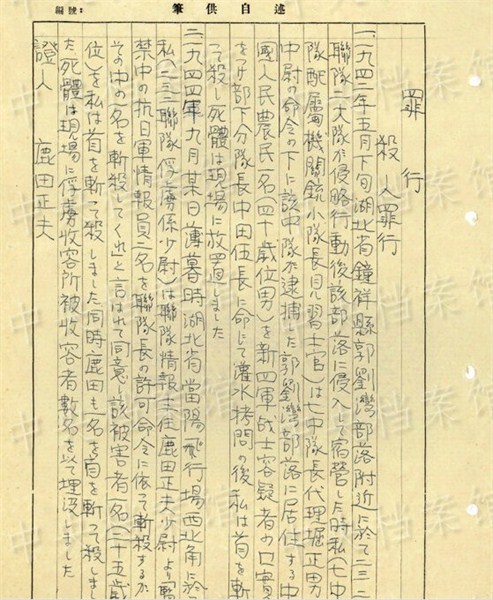 編號： 述自供筆
罪行
殺人罪行
一、一九四二年五月下旬湖北省鐘祥縣郭劉灣部落附近に於て二三二
聯隊二大隊が侵略行動後該部落に侵入して宿營した時私（七中
隊配屬機關銃小隊長見習士官）は七中隊長代理堀正男
中尉の命令の下に該中隊が逮捕した郭劉灣部落に居住する中
國人民農民一名（四十歲位男）を新四軍战士容疑者の口實
をつけ部下分隊長中田伍長に命じて灌水拷問の後私は首を斬
って殺し死體は現場に放置しました
二、一九四四年九月某日薄暮時湖北省當陽飛行場西北角に於て
私（二三二聯隊俘虜係少尉）は聯隊情報主任鹿田正夫少尉より
禁中の抗日軍情報員二名を聯隊長の許可命令に依って斬殺するが
その中の一名を斬殺してくれと言はれて同意し該被害者一名（三十五歲
位）を私は首を斬って殺しました同時鹿田も一名を首を斬って殺しまし
た死體は現場に俘虜收容所被收容者數名を以て埋沒しました
證人 鹿田正夫
中央档案馆